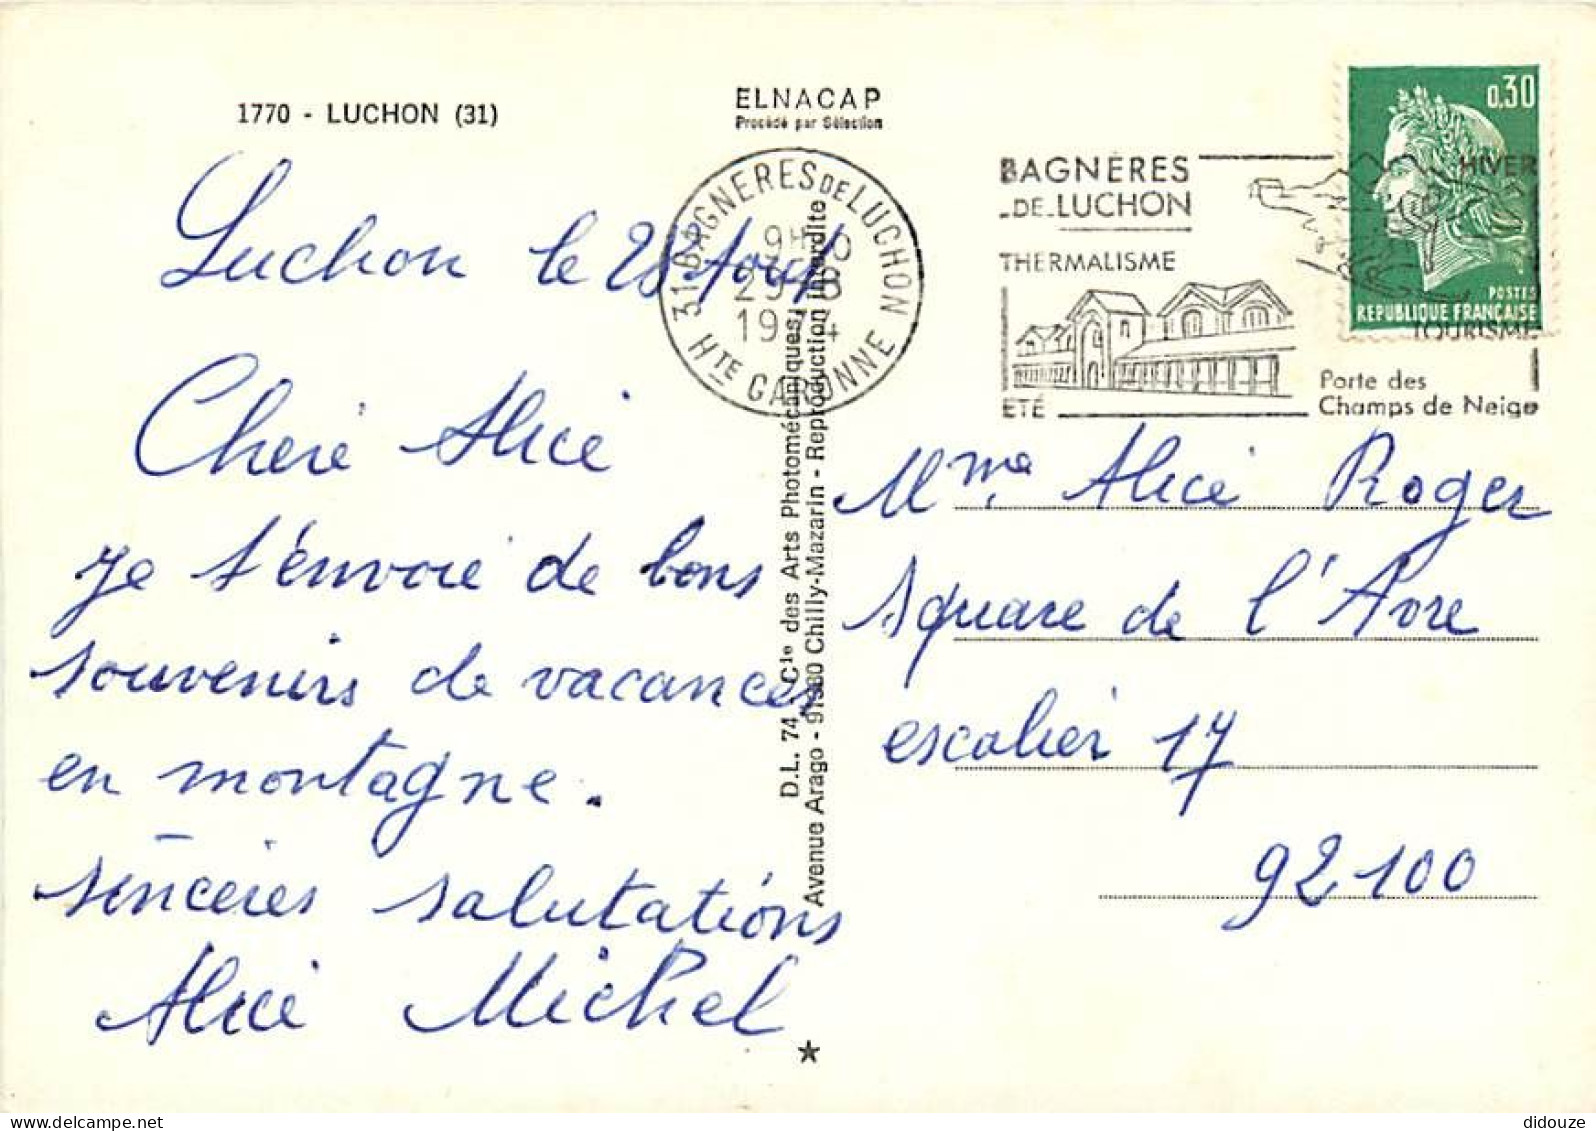 1770 - LUCHON (31)
ELNACAP
Procédé par Sélection
31 BAGNERES DE LUCHON
9H 0
29-8
1974
HTE GARONNE
BAGNÈRES
-DE-LUCHON
THERMALISME
ÉTÉ
HIVER
TOURISME
Porte des
Champs de Neige
0,30
POSTES
REPUBLIQUE FRANÇAISE
Luchon le 28 Août
Chere Alice
je t'envoie de bons
souvenirs de vacances
en montagne.
sincères salutations
Alice Michel
D.L. 74 - Cie des Arts Photomécaniques,
Avenue Arago - 91380 Chilly-Mazarin - Reproduction interdite
Mme Alice Roger
square de l'Avre
escalier 17
92100
delcampe.net
didouze